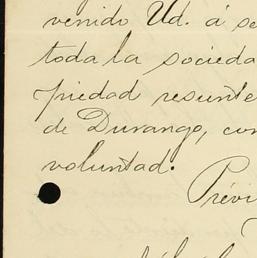 venido Ud. á se
toda la socieda
piedad resulte
de Durango, con
voluntad.
Prévi